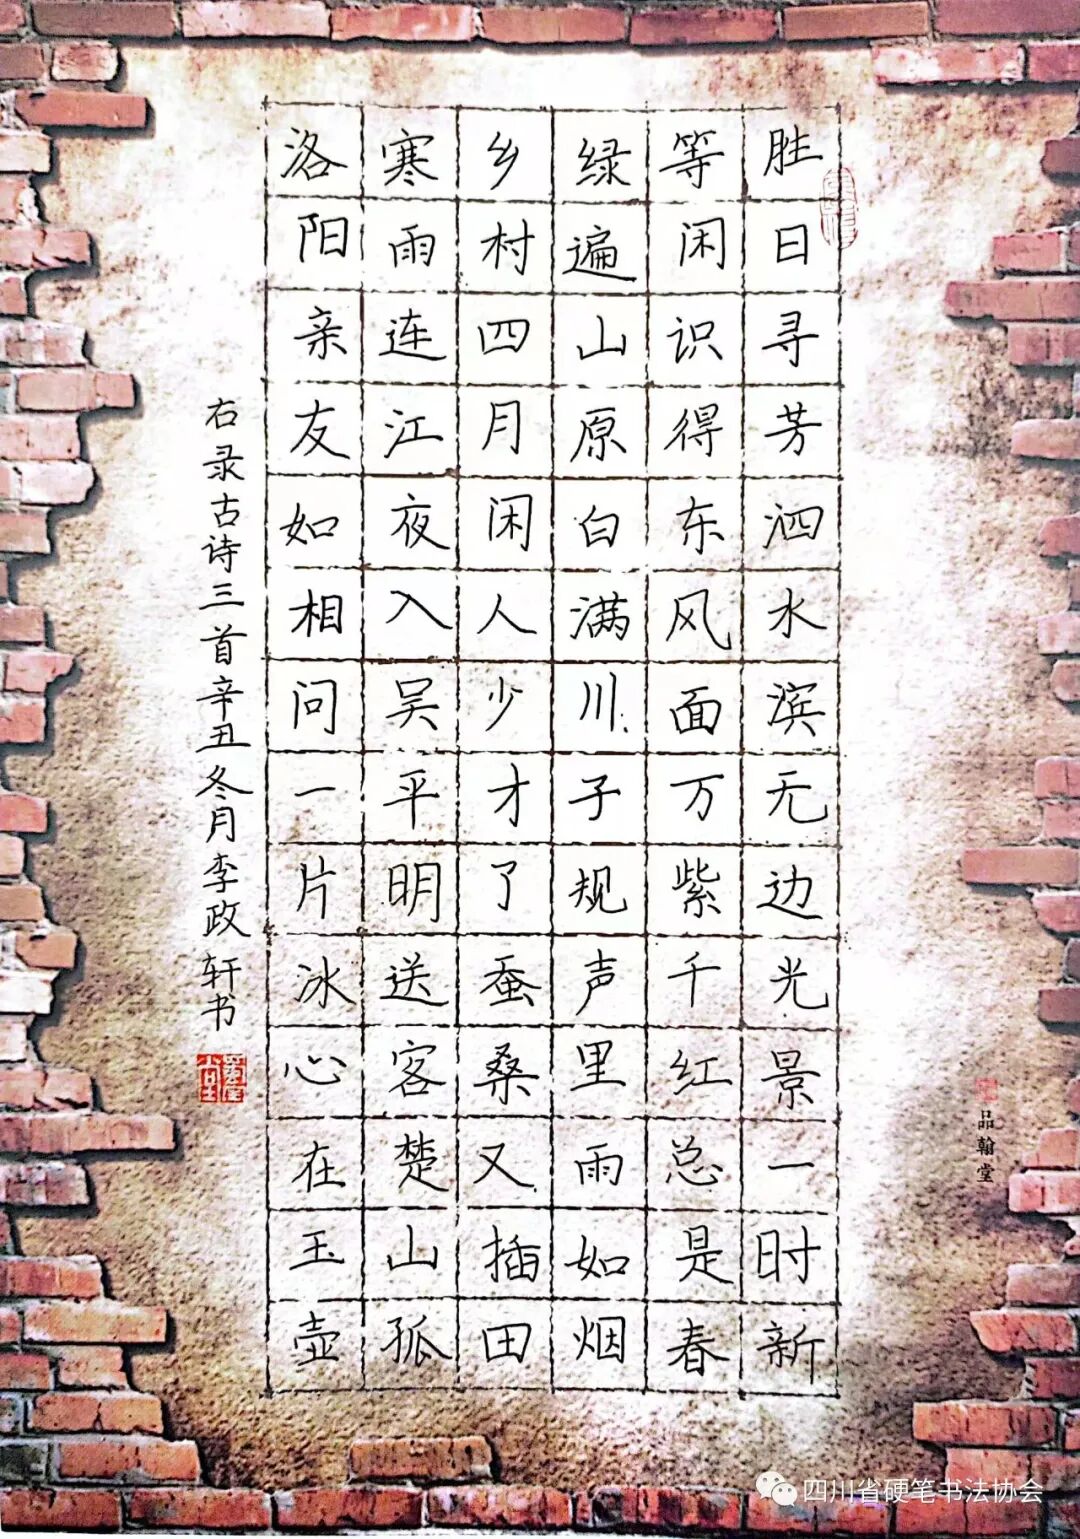 胜日寻芳泗水滨无边光景一时新
等闲识得东风面万紫千红总是春
绿遍山原白满川子规声里雨如烟
乡村四月闲人少才了蚕桑又插田
寒雨连江夜入吴平明送客楚山孤
洛阳亲友如相问一片冰心在玉壶
右录古诗三首辛丑冬月李政轩书
品翰堂
四川省硬笔书法协会